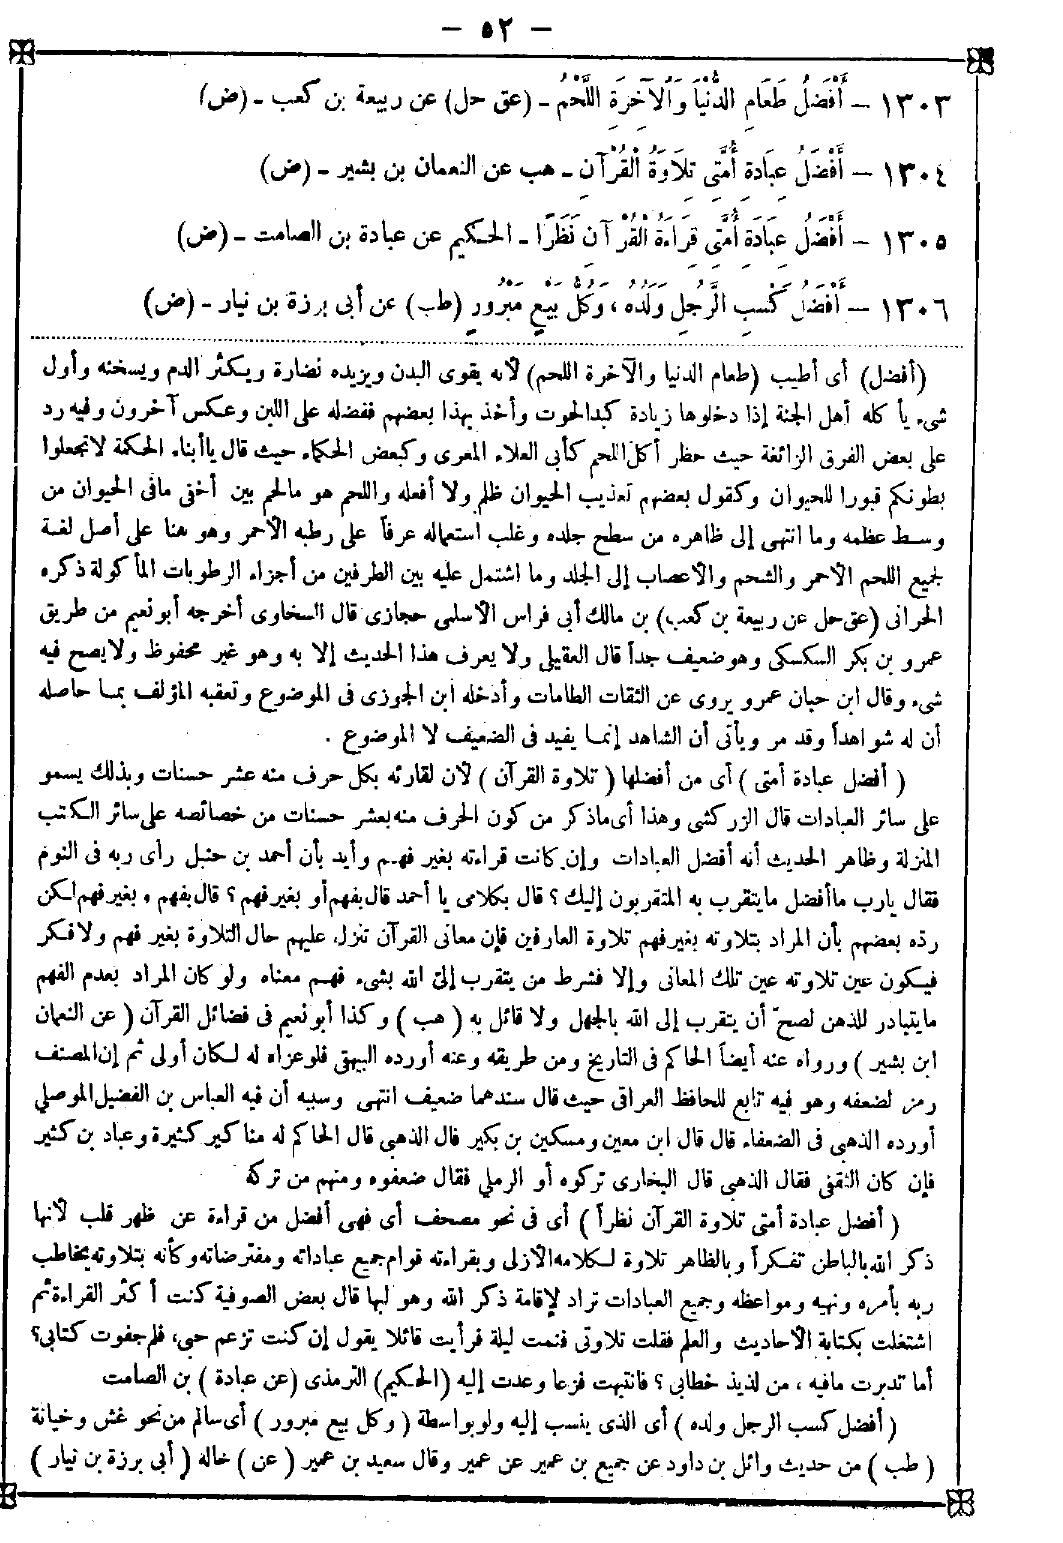 - ٥٢ -
١٣٠٣ - أَفْضَلُ طَعَامِ الدُّنْيَا وَالْآخِرَةِ اللَّحْمُ - (عق حل) عن ربيعة بن كعب - (ض)
١٣٠٤ - أَفْضَلُ عِبَادَةِ أُمَّتِي تِلَاوَةُ الْقُرْآنِ - هب عن النعمان بن بشير - (ض)
١٣٠٥ - أَفْضَلُ عِبَادَةِ أُمَّتِي قِرَاءَةُ الْقُرْآنِ نَظَرًا - الحكيم عن عبادة بن الصامت - (ض)
١٣٠٦ - أَفْضَلُ كَسْبِ الرَّجُلِ وَلَدُهُ ، وَكُلُّ بَيْعٍ مَبْرُورٍ (طب) عن أبي برزة بن نيار - (ض)
(أفضل) أى أطيب (طعام الدنيا والآخرة اللحم) لأنه يقوى البدن ويزيده نضارة ويكثر الدم ويسخنه وأول
شىء يأكله أهل الجنة إذا دخلوها زيادة كبد الحوت وأخذ بهذا بعضهم ففضله على اللبن وعكس آخرون وفيه رد
على بعض الفرق الزائغة حيث حظر أكل اللحم كأبى العلاء المعرى وكبعض الحكماء حيث قال ياأبناء الحكمة لاتجعلوا
بطونكم قبورا للحيوان وكقول بعضهم تعذيب الحيوان ظلم ولا أفعله واللحم هو مالحم بين أخفى مافى الحيوان من
وسط عظمه وما انتهى إلى ظاهره من سطح جلده وغلب استعماله عرفاً على رطبه الأحمر وهو هنا على أصل لغة
لجميع اللحم الأحمر والشحم والأعصاب إلى الجلد وما اشتمل عليه بين الطرفين من أجزاء الرطوبات المأكولة ذكره
الحرانى (عق حل عن ربيعة بن كعب) بن مالك أبى فراس الأسلمى حجازى قال السخاوى أخرجه أبو نعيم من طريق
عمرو بن بكر السكسكى وهو ضعيف جداً قال العقيلى ولا يعرف هذا الحديث إلا به وهو غير محفوظ ولا يصح فيه
شىء وقال ابن حبان عمرو يروى عن الثقات الطامات وأدخله ابن الجوزى فى الموضوع وتعقبه المؤلف بما حاصله
أن له شواهداً وقد مر ويأتى أن الشاهد إنما يفيد فى الضعيف لا الموضوع .
( أفضل عبادة أمتى ) أى من أفضلها ( تلاوة القرآن ) لأن لقارئه بكل حرف منه عشر حسنات وبذلك يسمو
على سائر العبادات قال الزركشى وهذا أى ماذكر من كون الحرف منه بعشر حسنات من خصائصه على سائر الكتب
المنزلة وظاهر الحديث أنه أفضل العبادات وإن كانت قراءته بغير فهم وأيد بأن أحمد بن حنبل رأى ربه فى النوم
فقال يارب ماأفضل مايتقرب به المتقربون إليك ؟ قال بكلامى يا أحمد قال بفهم أو بغير فهم ؟ قال بفهم وبغير فهم لكن
رده بعضهم بأن المراد بتلاوته بغير فهم تلاوة العارفين فإن معانى القرآن تنزل عليهم حال التلاوة بغير فهم ولا فكر
فيكون عين تلاوته عين تلك المعانى وإلا فشرط من يتقرب إلى الله بشىء فهم معناه ولو كان المراد بعدم الفهم
مايتبادر للذهن لصحّ أن يتقرب إلى الله بالجهل ولا قائل به ( هب ) وكذا أبو نعيم فى فضائل القرآن ( عن النعمان
ابن بشير ) ورواه عنه أيضاً الحاكم فى التاريخ ومن طريقه وعنه أورده البيهقى فلو عزاه له لكان أولى ثم إن المصنف
رمز لضعفه وهو فيه تابع للحافظ العراقى حيث قال سندهما ضعيف انتهى وسببه أن فيه العباس بن الفضيل الموصلى
أورده الذهبى فى الضعفاء قال قال ابن معين ومسكين بن بكير قال الذهبى قال الحاكم له مناكير كثيرة وعباد بن كثير
فإن كان الثقفى فقال الذهبى قال البخارى تركوه أو الرملى فقال ضعفوه ومنهم من تركه
( أفضل عبادة أمتى تلاوة القرآن نظراً ) أى فى نحو مصحف أى فهى أفضل من قراءة عن ظهر قلب لأنها
ذكر الله بالباطن تفكراً وبالظاهر تلاوة لكلامه الأزلى وبقراءته قوام جميع عباداته ومفترضاته وكأنه بتلاوته يخاطب
ربه بأمره ونهيه ومواعظه وجميع العبادات تراد لإقامة ذكر الله وهو لبها قال بعض الصوفية كنت أكثر القراءة ثم
اشتغلت بكتابة الأحاديث والعلم فقلت تلاوتى فنمت ليلة فرأيت قائلا يقول إن كنت تزعم حبى، فلم جفوت كتابى؟
أما تدبرت مافيه ، من لذيذ خطابى ؟ فانتبهت فزعا وعدت إليه (الحكيم) الترمذى (عن عبادة ) بن الصامت
( أفضل كسب الرجل ولده ) أى الذى ينسب إليه ولو بواسطة ( وكل بيع مبرور ) أى سالم من نحو غش وخيانة
( طب ) من حديث وائل بن داود عن جميع بن عمير عن عمير وقال سعيد بن عمير ( عن ) خاله ( أبى برزة بن نيار )